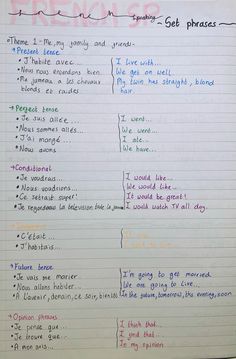 FRENCH
french
Speaking
- Set phrases -
Theme 1 - Me, my family and friends -
Present tense
J'habite avec...
I live with...
Nous nous entendons bien
We get on well
Ma jumeau a les cheveux
My twin has straight, blond
blonds et raides
hair.
Perfect tense
Je suis allée...
I went...
Nous sommes allés...
We went...
J'ai mangé...
I ate...
Nous avons
We have...
Conditional
Je voudrais...
I would like...
Nous voudrions...
We would like...
Ce serait super!
It would be great!
Je regarderais la télévision toute la
I would watch TV all day.
C'était...
J'habitais...
Future tense
Je vais me marier
I'm going to get married
Nous allons habiter...
We are going to live...
A l'avenir, demain, ce soir, bientôt
In the future, tomorrow, this evening, soon
Opinion phrases
Je pense que...
I think that...
Je trouve que...
I find that...
A mon avis...
In my opinion